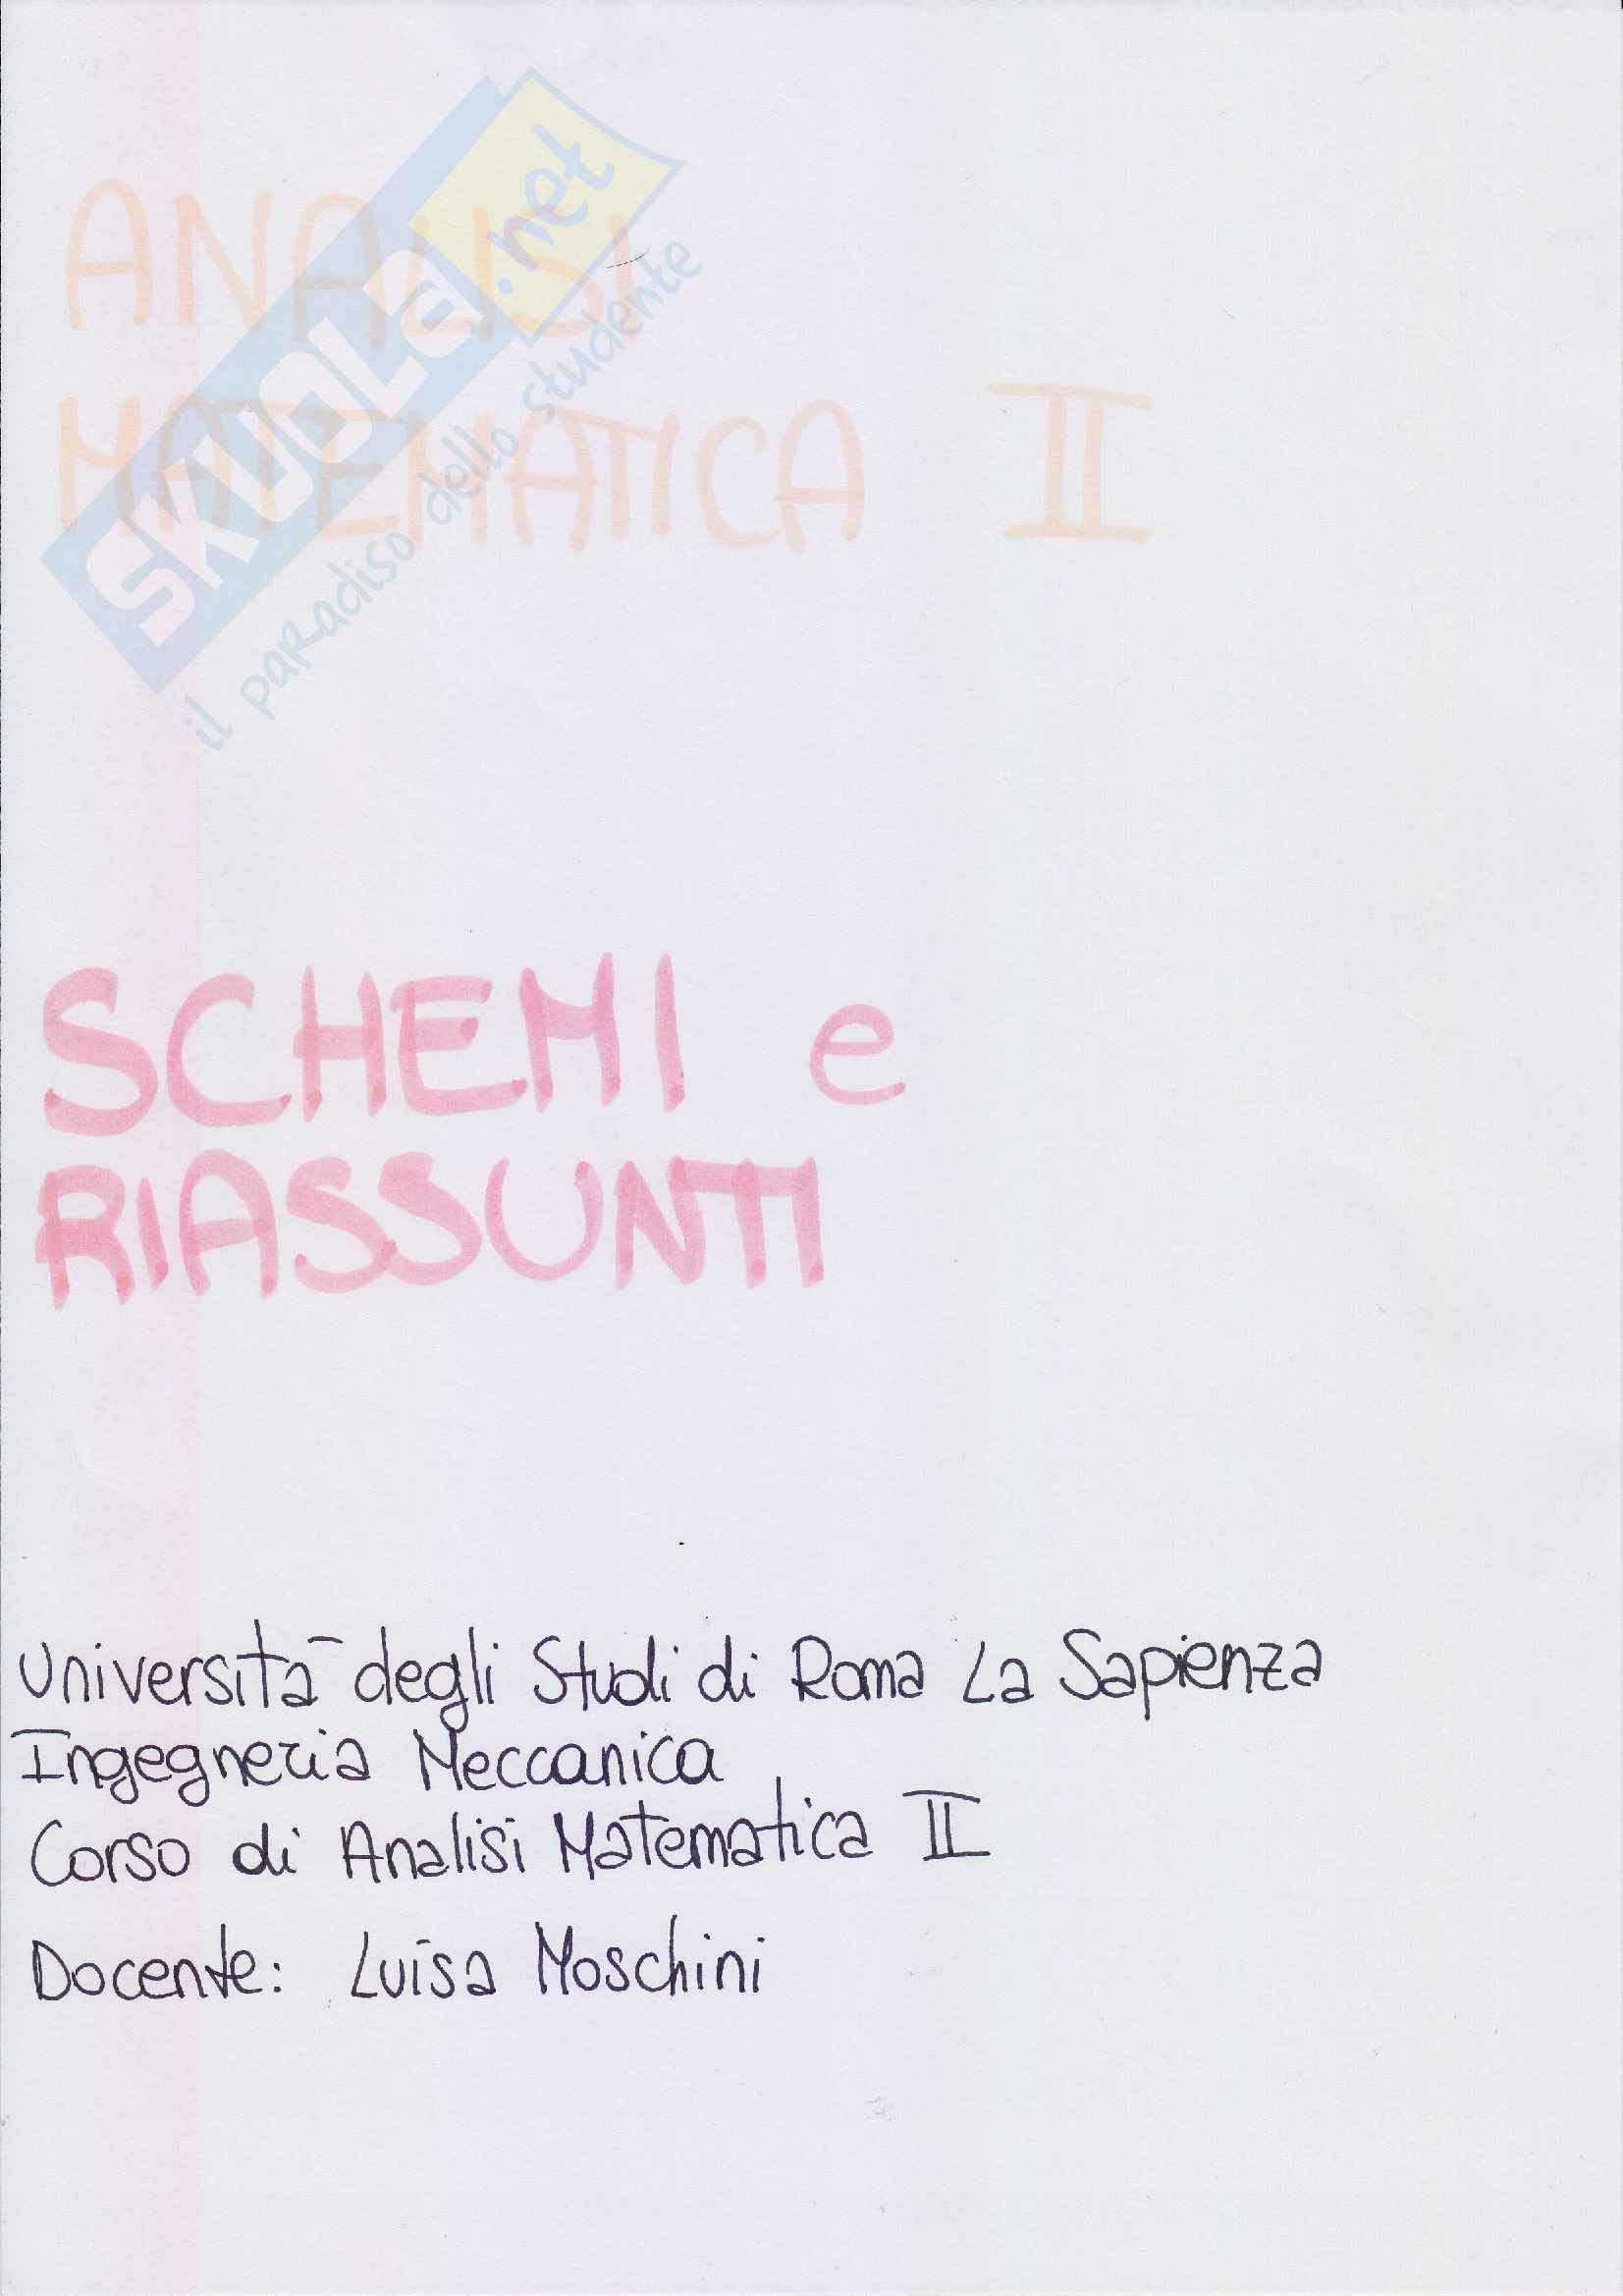 ANALISI
MATEMATICA II
SKUOLa.net
il paradiso dello studente
SCHEMI e
RIASSUNTI
Università degli Studi di Roma La Sapienza
Ingegneria Meccanica
Corso di Analisi Matematica II
Docente: Luisa Moschini